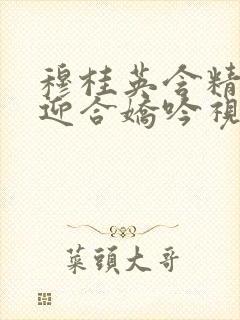 穆桂英含精
迎合嬌吟視
菜頭大哥